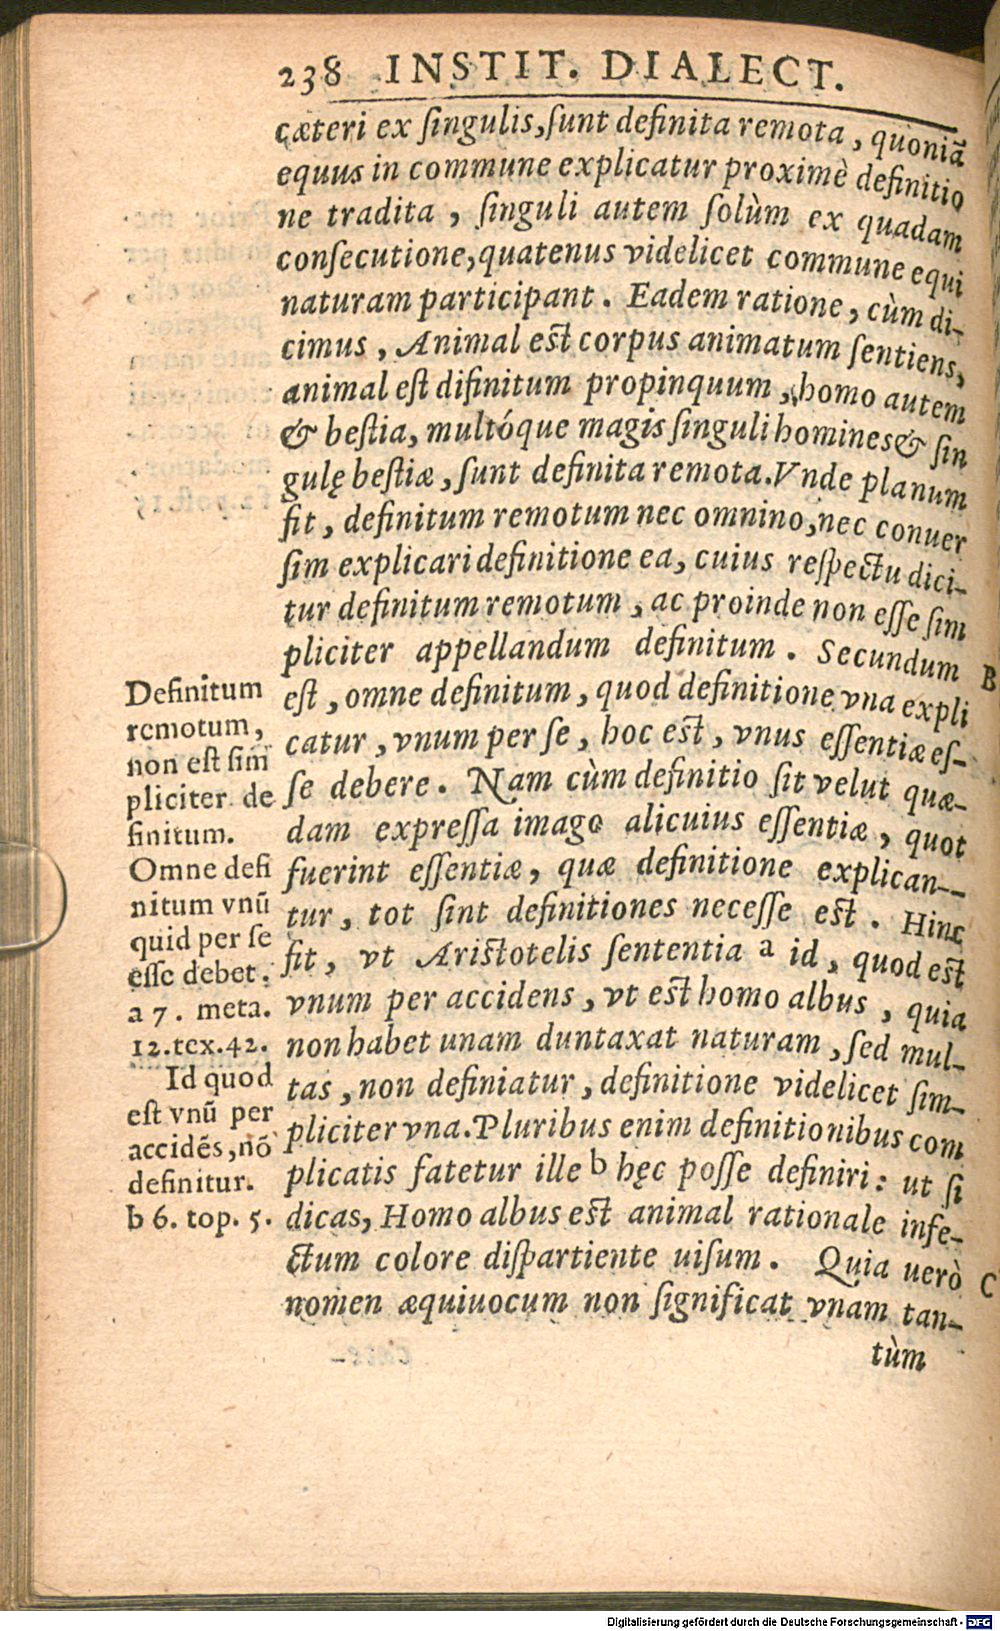 238 INSTIT. DIALECT.
cæteri ex ſingulis, ſunt definita remota, quoniã
equus in commune explicatur proximè definitio
ne tradita, ſinguli autem ſolùm ex quadam
conſecutione, quatenus videlicet commune equi
naturam participant. Eadem ratione, cùm di-
cimus, Animal eſt corpus animatum ſentiens,
animal eſt difinitum propinquum, homo autem
& beſtia, multóque magis ſinguli homines & ſin
gulę beſtiæ, ſunt definita remota. Vnde planum
fit, definitum remotum nec omnino, nec conuer
ſim explicari definitione ea, cuius reſpectu dici-
tur definitum remotum, ac proinde non eſſe ſim
pliciter appellandum definitum. Secundum
B
eſt, omne definitum, quod definitione vna expli
catur, vnum per ſe, hoc eſt, vnus eſſentiæ eſ-
ſe debere. Nam cùm definitio ſit velut quæ-
dam expreſſa imago alicuius eſſentiæ, quot
fuerint eſſentiæ, quæ definitione explican-
tur, tot ſint definitiones neceſſe eſt. Hinc
fit, vt Ariſtotelis ſententia a id, quod eſt
vnum per accidens, vt eſt homo albus, quia
non habet unam duntaxat naturam, ſed mul-
tas, non definiatur, definitione videlicet ſim-
pliciter vna. Pluribus enim definitionibus com
plicatis fatetur ille b hęc poſſe definiri: ut ſi
dicas, Homo albus eſt animal rationale infe-
ctum colore diſpartiente uiſum. Quia uerò
C
nomen æquiuocum non ſignificat vnam tan-
tùm
Definitum
remotum,
non eſt ſim
pliciter de
finitum.
Omne defi
nitum vnũ
quid per ſe
eſſe debet.
a 7. meta.
12.tex.42.
Id quod
eſt vnũ per
accidẽs, nõ
definitur.
b 6. top. 5.
Digitalisierung gefördert durch die Deutsche Forschungsgemeinschaft - DFG